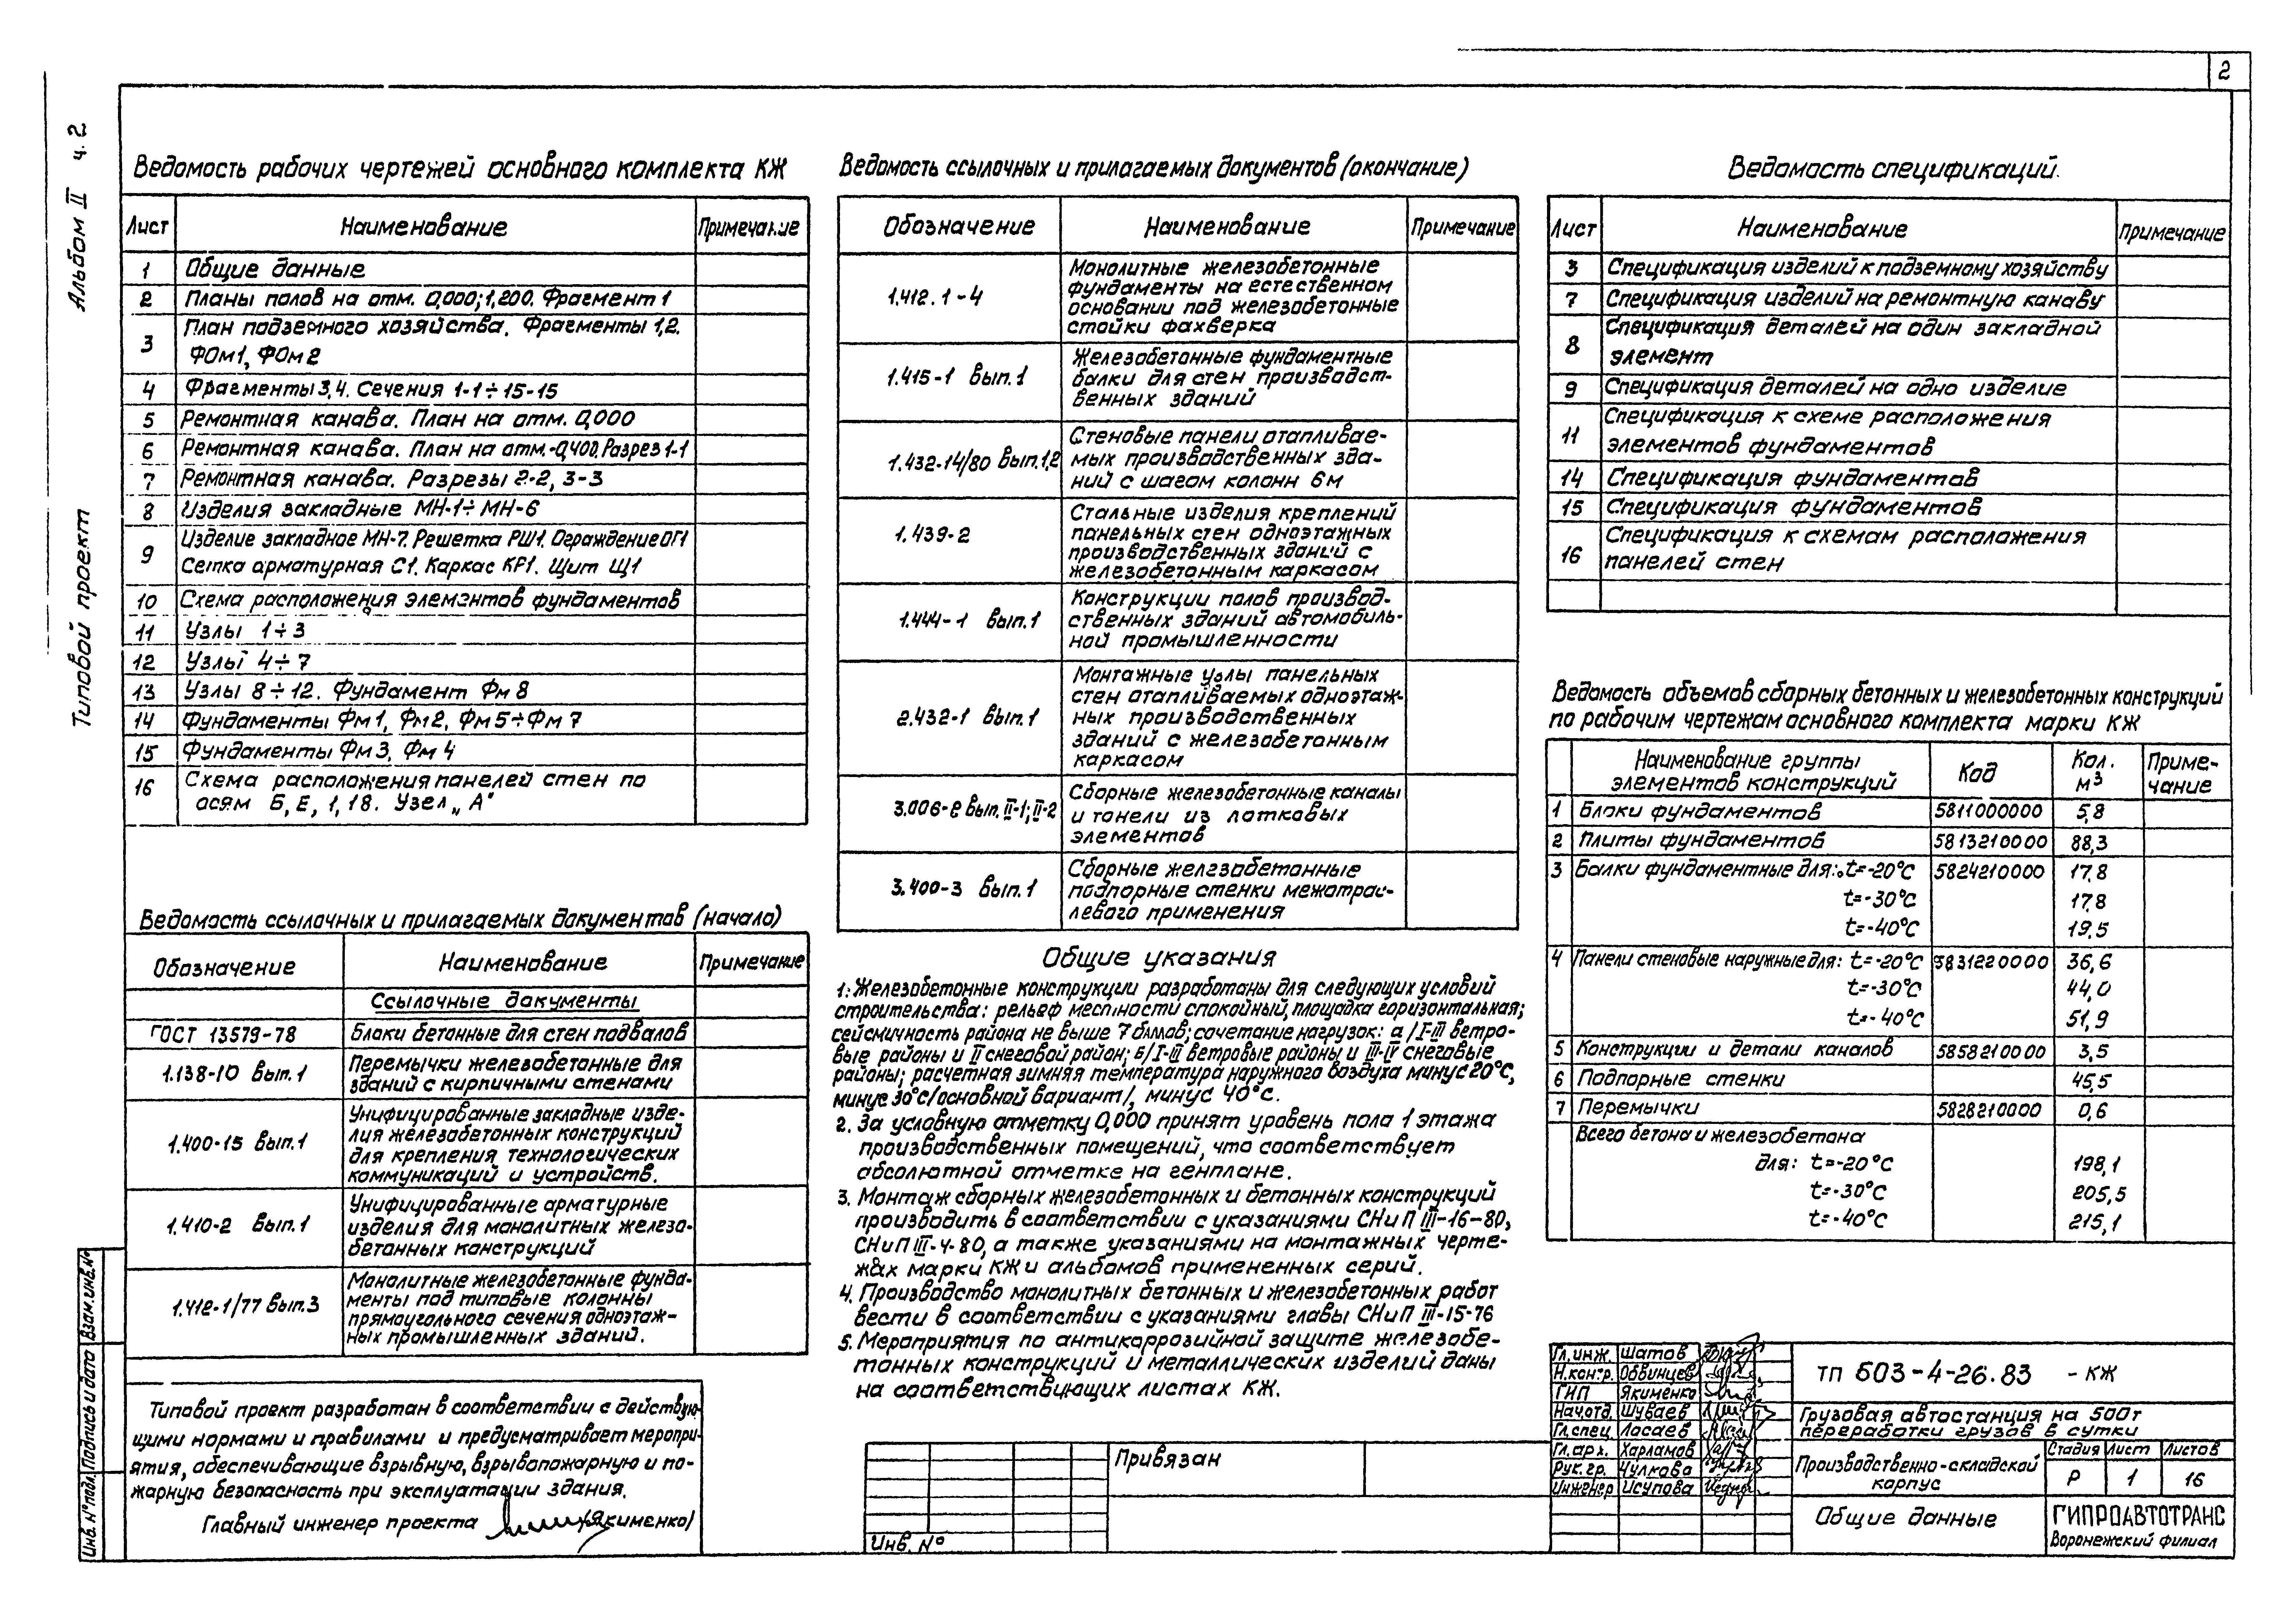 2
Альбом II ч. 2
Типовой проект
Ведомость рабочих чертежей основного комплекта КЖ
Лист Наименование Примечание
1 Общие данные
2 Планы полов на отм. 0,000; 1,200. Фрагмент 1
3 План подземного хозяйства. Фрагменты 1,2.
ФОм1, ФОм2
4 Фрагменты 3,4. Сечения 1-1÷15-15
5 Ремонтная канава. План на отм. 0,000
6 Ремонтная канава. План на отм.-0,400. Разрез 1-1
7 Ремонтная канава. Разрезы 2-2, 3-3
8 Изделия закладные МН-1÷МН-6
9 Изделие закладное МН-7. Решетка РШ1. Ограждение ОГ1
Сетка арматурная С1. Каркас КР1. Щит Щ1
10 Схема расположения элементов фундаментов
11 Узлы 1÷3
12 Узлы 4÷7
13 Узлы 8÷12. Фундамент Фм 8
14 Фундаменты Фм1, Фм2, Фм5÷Фм 7
15 Фундаменты Фм 3, Фм 4
16 Схема расположения панелей стен по
осям Б, Е, 1, 18. Узел „А"
Ведомость ссылочных и прилагаемых документов (начало)
Обозначение Наименование Примечание
Ссылочные документы
ГОСТ 13579-78 Блоки бетонные для стен подвалов
1.138-10 вып.1 Перемычки железобетонные для
зданий с кирпичными стенами
1.400-15 вып.1 Унифицированные закладные изде-
лия железобетонных конструкций
для крепления технологических
коммуникаций и устройств.
1.410-2 вып.1 Унифицированные арматурные
изделия для монолитных железо-
бетонных конструкций
1.412-1/77 вып.3 Монолитные железобетонные фунда-
менты под типовые колонны
прямоугольного сечения одноэтаж-
ных промышленных зданий.
Типовой проект разработан в соответствии с действую-
щими нормами и правилами и предусматривает меропри-
ятия, обеспечивающие взрывную, взрывопожарную и по-
жарную безопасность при эксплуатации здания.
Главный инженер проекта /Якименко/
Инв. № подл. Подпись и дата Взам. инв. №
Ведомость ссылочных и прилагаемых документов (окончание)
Обозначение Наименование Примечание
1.412.1-4 Монолитные железобетонные
фундаменты на естественном
основании под железобетонные
стойки фахверка
1.415-1 вып.1 Железобетонные фундаментные
балки для стен производст-
венных зданий
1.432-14/80 вып.1,2 Стеновые панели отапливае-
мых производственных зда-
ний с шагом колонн 6м
1.439-2 Стальные изделия креплений
панельных стен одноэтажных
производственных зданий с
железобетонным каркасом
1.444-1 вып.1 Конструкции полов производ-
ственных зданий автомобиль-
ной промышленности
2.432-1 вып.1 Монтажные узлы панельных
стен отапливаемых одноэтаж-
ных производственных
зданий с железобетонным
каркасом
3.006-2 вып. II-1; II-2 Сборные железобетонные каналы
и тонели из лотковых
элементов
3.400-3 вып.1 Сборные железобетонные
подпорные стенки межотрас-
левого применения
Общие указания
1. Железобетонные конструкции разработаны для следующих условий
строительства: рельеф местности спокойный, площадка горизонтальная;
сейсмичность района не выше 7 баллов; сочетание нагрузок: а/ I-III ветро-
вые районы и II снеговой район; б/ I-III ветровые районы и III-IV снеговые
районы; расчетная зимняя температура наружного воздуха минус 20°С,
минус 30°С/основной вариант/, минус 40°С.
2. За условную отметку 0,000 принят уровень пола 1 этажа
производственных помещений, что соответствует
абсолютной отметке на генплане.
3. Монтаж сборных железобетонных и бетонных конструкций
производить в соответствии с указаниями СНиП III-16-80,
СНиП III-4-80, а также указаниями на монтажных черте-
жах марки КЖ и альбомов примененных серий.
4. Производство монолитных бетонных и железобетонных работ
вести в соответствии с указаниями главы СНиП III-15-76
5. Мероприятия по антикоррозийной защите железобе-
тонных конструкций и металлических изделий даны
на соответствующих листах КЖ.
Привязан
Инв. №
Ведомость спецификаций.
Лист Наименование Примечание
3 Спецификация изделий к подземному хозяйству
7 Спецификация изделий на ремонтную канаву
8 Спецификация деталей на один закладной
элемент
9 Спецификация деталей на одно изделие
11 Спецификация к схеме расположения
элементов фундаментов
14 Спецификация фундаментов
15 Спецификация фундаментов
16 Спецификация к схемам расположения
панелей стен
Ведомость объемов сборных бетонных и железобетонных конструкций
по рабочим чертежам основного комплекта марки КЖ
Наименование группы элементов конструкций Код Кол. м³ Приме-чание
1 Блоки фундаментов 5811000000 5,8
2 Плиты фундаментов 5813210000 88,3
3 Балки фундаментные для: t=-20°С 5824210000 17,8
t=-30°С 17,8
t=-40°С 19,5
4 Панели стеновые наружные для: t=-20°С 5831220000 36,6
t=-30°С 44,0
t=-40°С 51,9
5 Конструкции и детали каналов 5858210000 3,5
6 Подпорные стенки 45,5
7 Перемычки 5828210000 0,6
Всего бетона и железобетона
для: t=-20°С 198,1
t=-30°С 205,5
t=-40°С 215,1
Гл. инж. Шатов
Н.контр. Обвинцев
ГИП Якименко
Нач.отд. Шуваев
Гл.спец. Ласаев
Гл.арх. Харламов
Рук.гр. Чулкова
Инженер Исупова
ТП 503-4-26.83 -КЖ
Грузовая автостанция на 500т
переработки грузов в сутки
Производственно-складской
корпус
Стадия Лист Листов
Р 1 16
Общие данные
ГИПРОАВТОТРАНС
Воронежский филиал